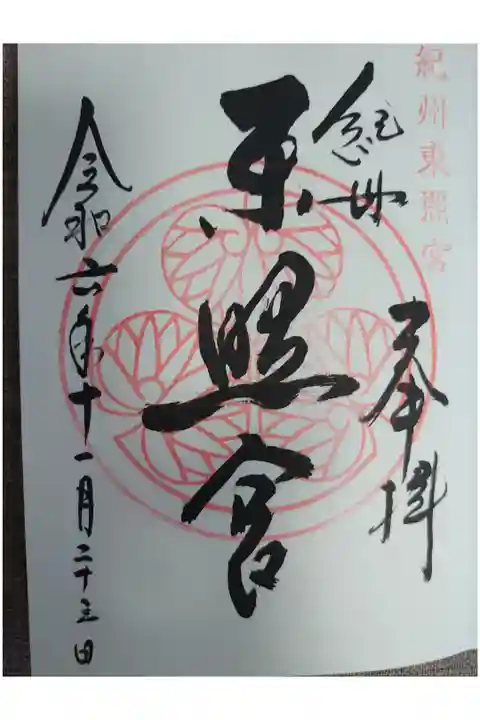 紀州東照宮
奉拝
総州
東照宮
令和六年十一月二十三日